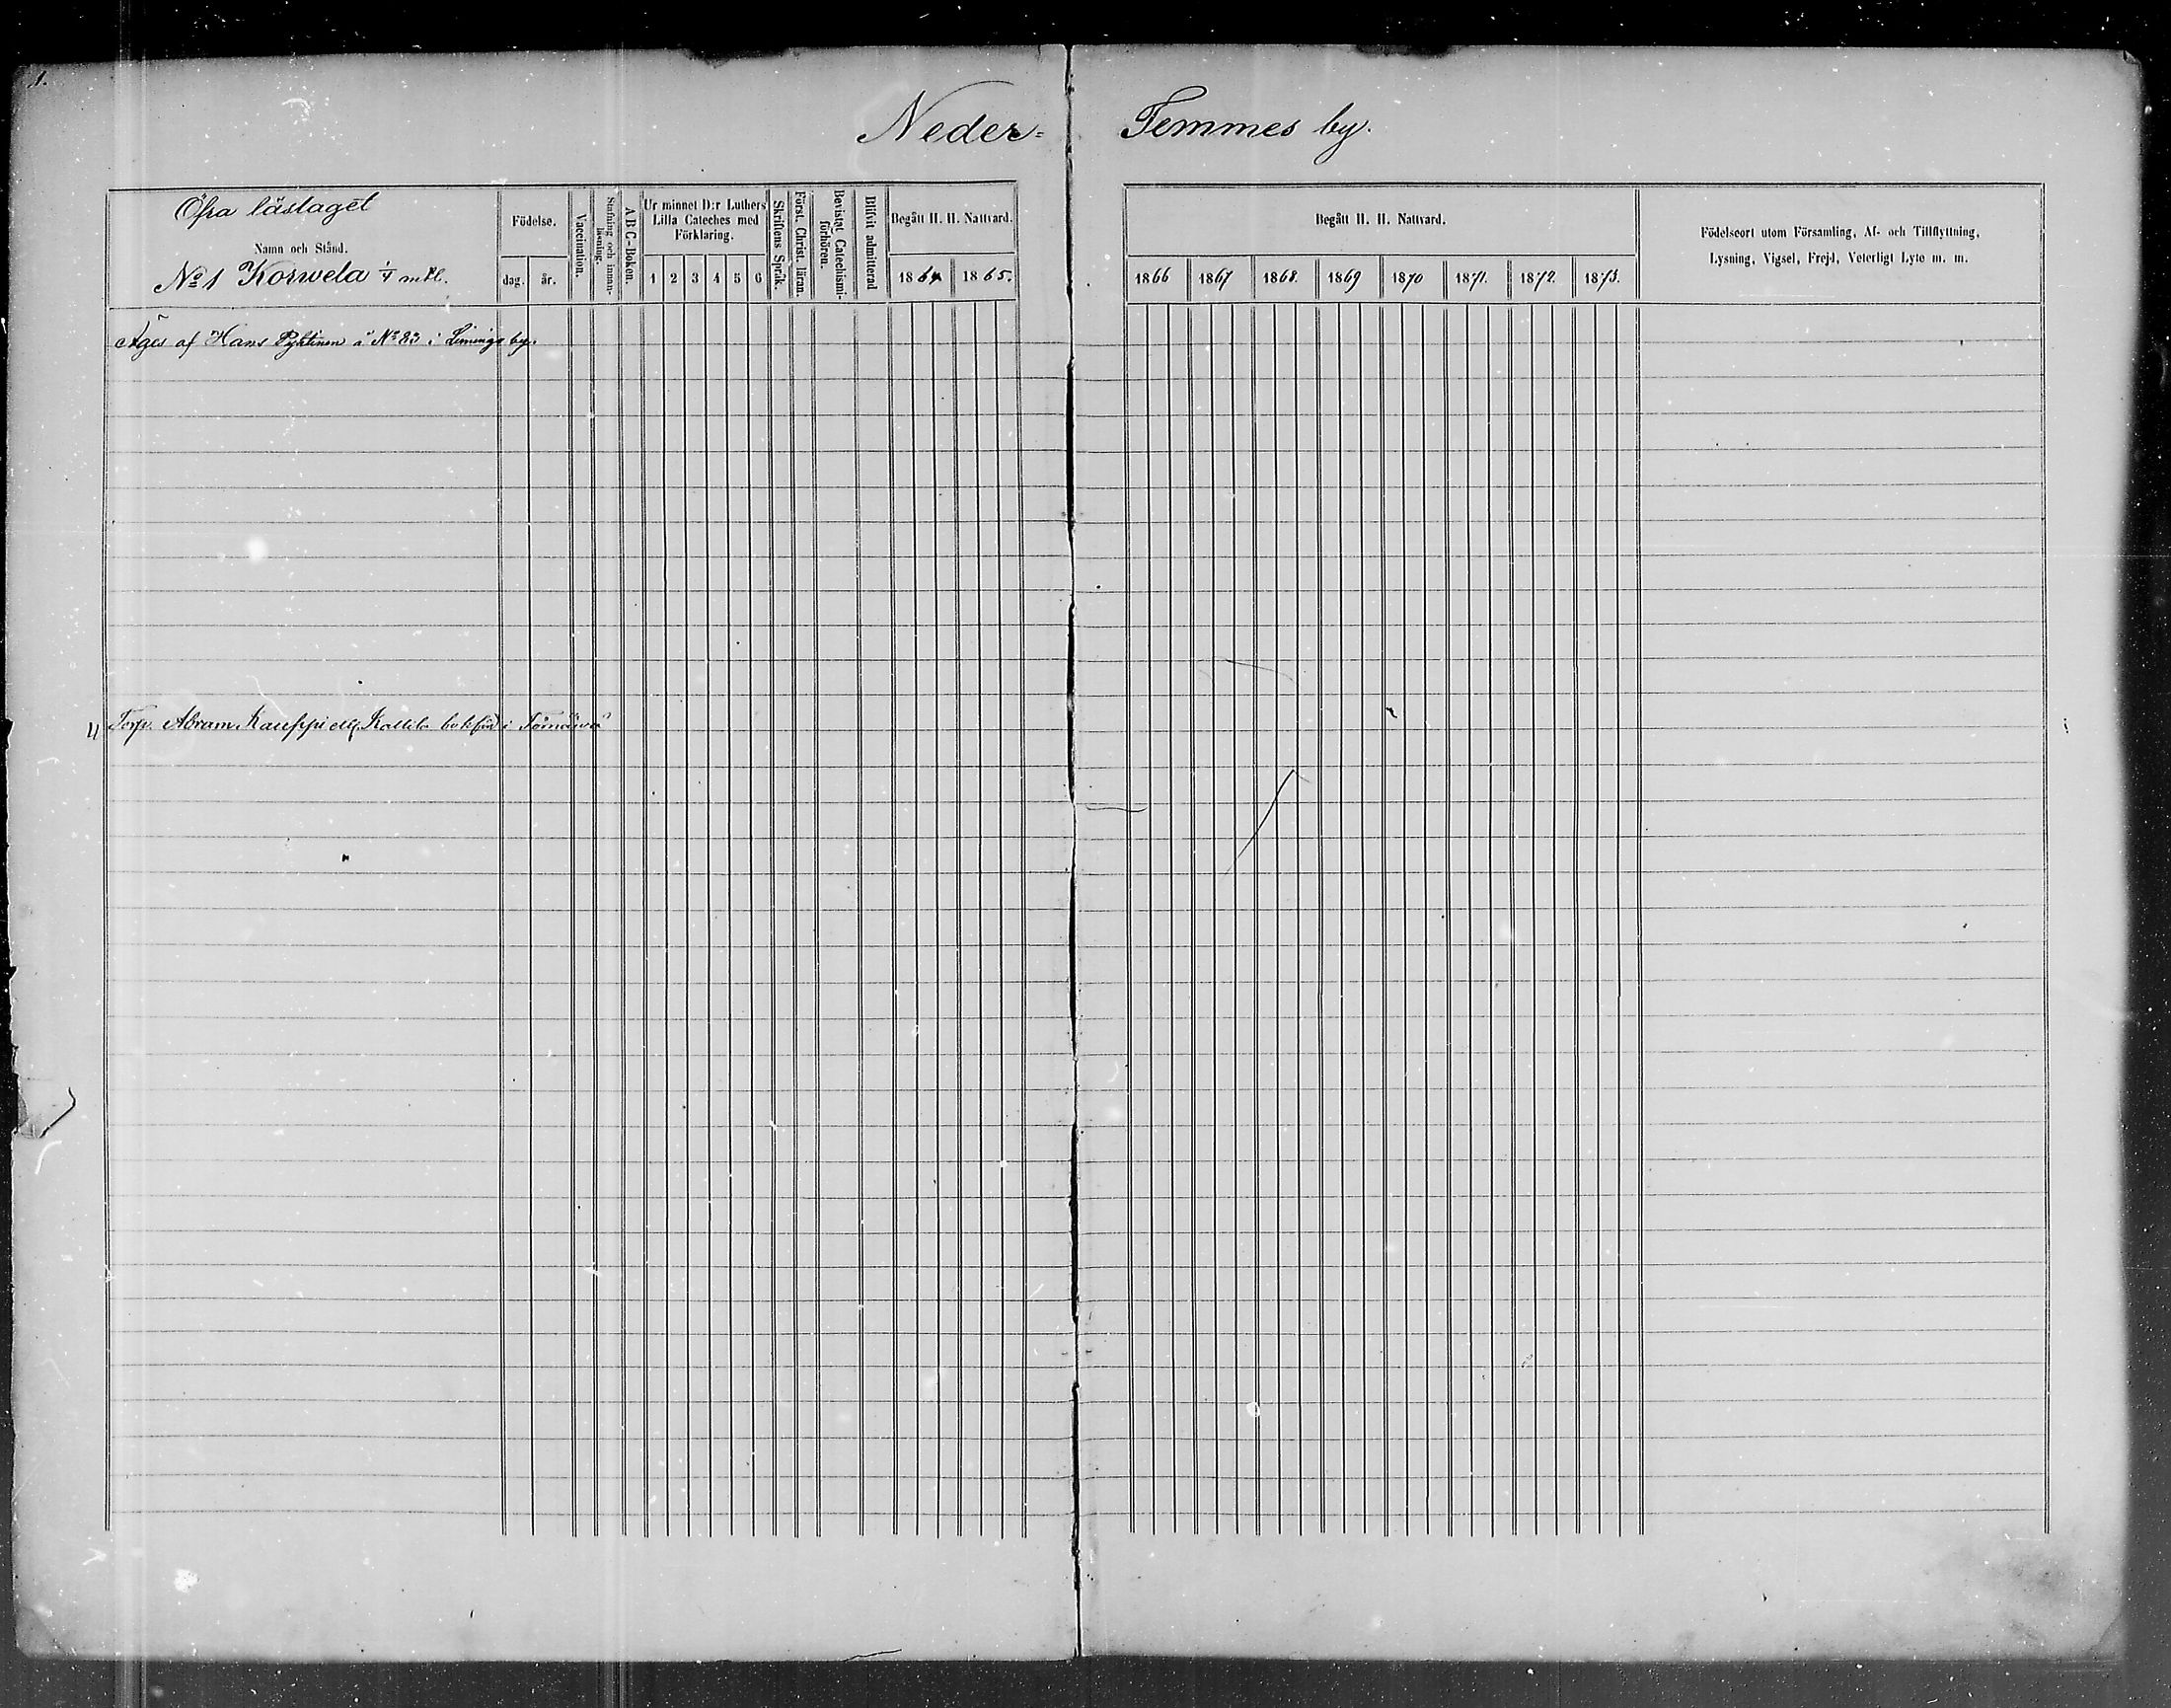 1.
Neder= Temmes by.
Öfra läslaget
Namn och Stånd.
No 1 Korwela 1/4 mtl.
Födelse.
dag. år.
Vaccination.
Stafning och innan-läsning.
A B C-Boken.
Ur minnet D:r Luthers
Lilla Cateches med
Förklaring.
1 2 3 4 5 6
Skriftens Språk.
Först. Christ. läran.
Bevistat Catechismi-förhören.
Blifvit admitterad
Begått H. H. Nattvard.
1864 1865.
Begått H. H. Nattvard.
1866 1867 1868. 1869 1870 1871. 1872. 1873.
Födelseort utom Församling, Af- och Tillflyttning,
Lysning, Vigsel, Frejd, Veterligt Lyte m. m.
Äges af Hans Pyhtinen å No 83 i Limingo by.
Torp. Abram Kauppi ell. Kallila bokförd i Törnävä